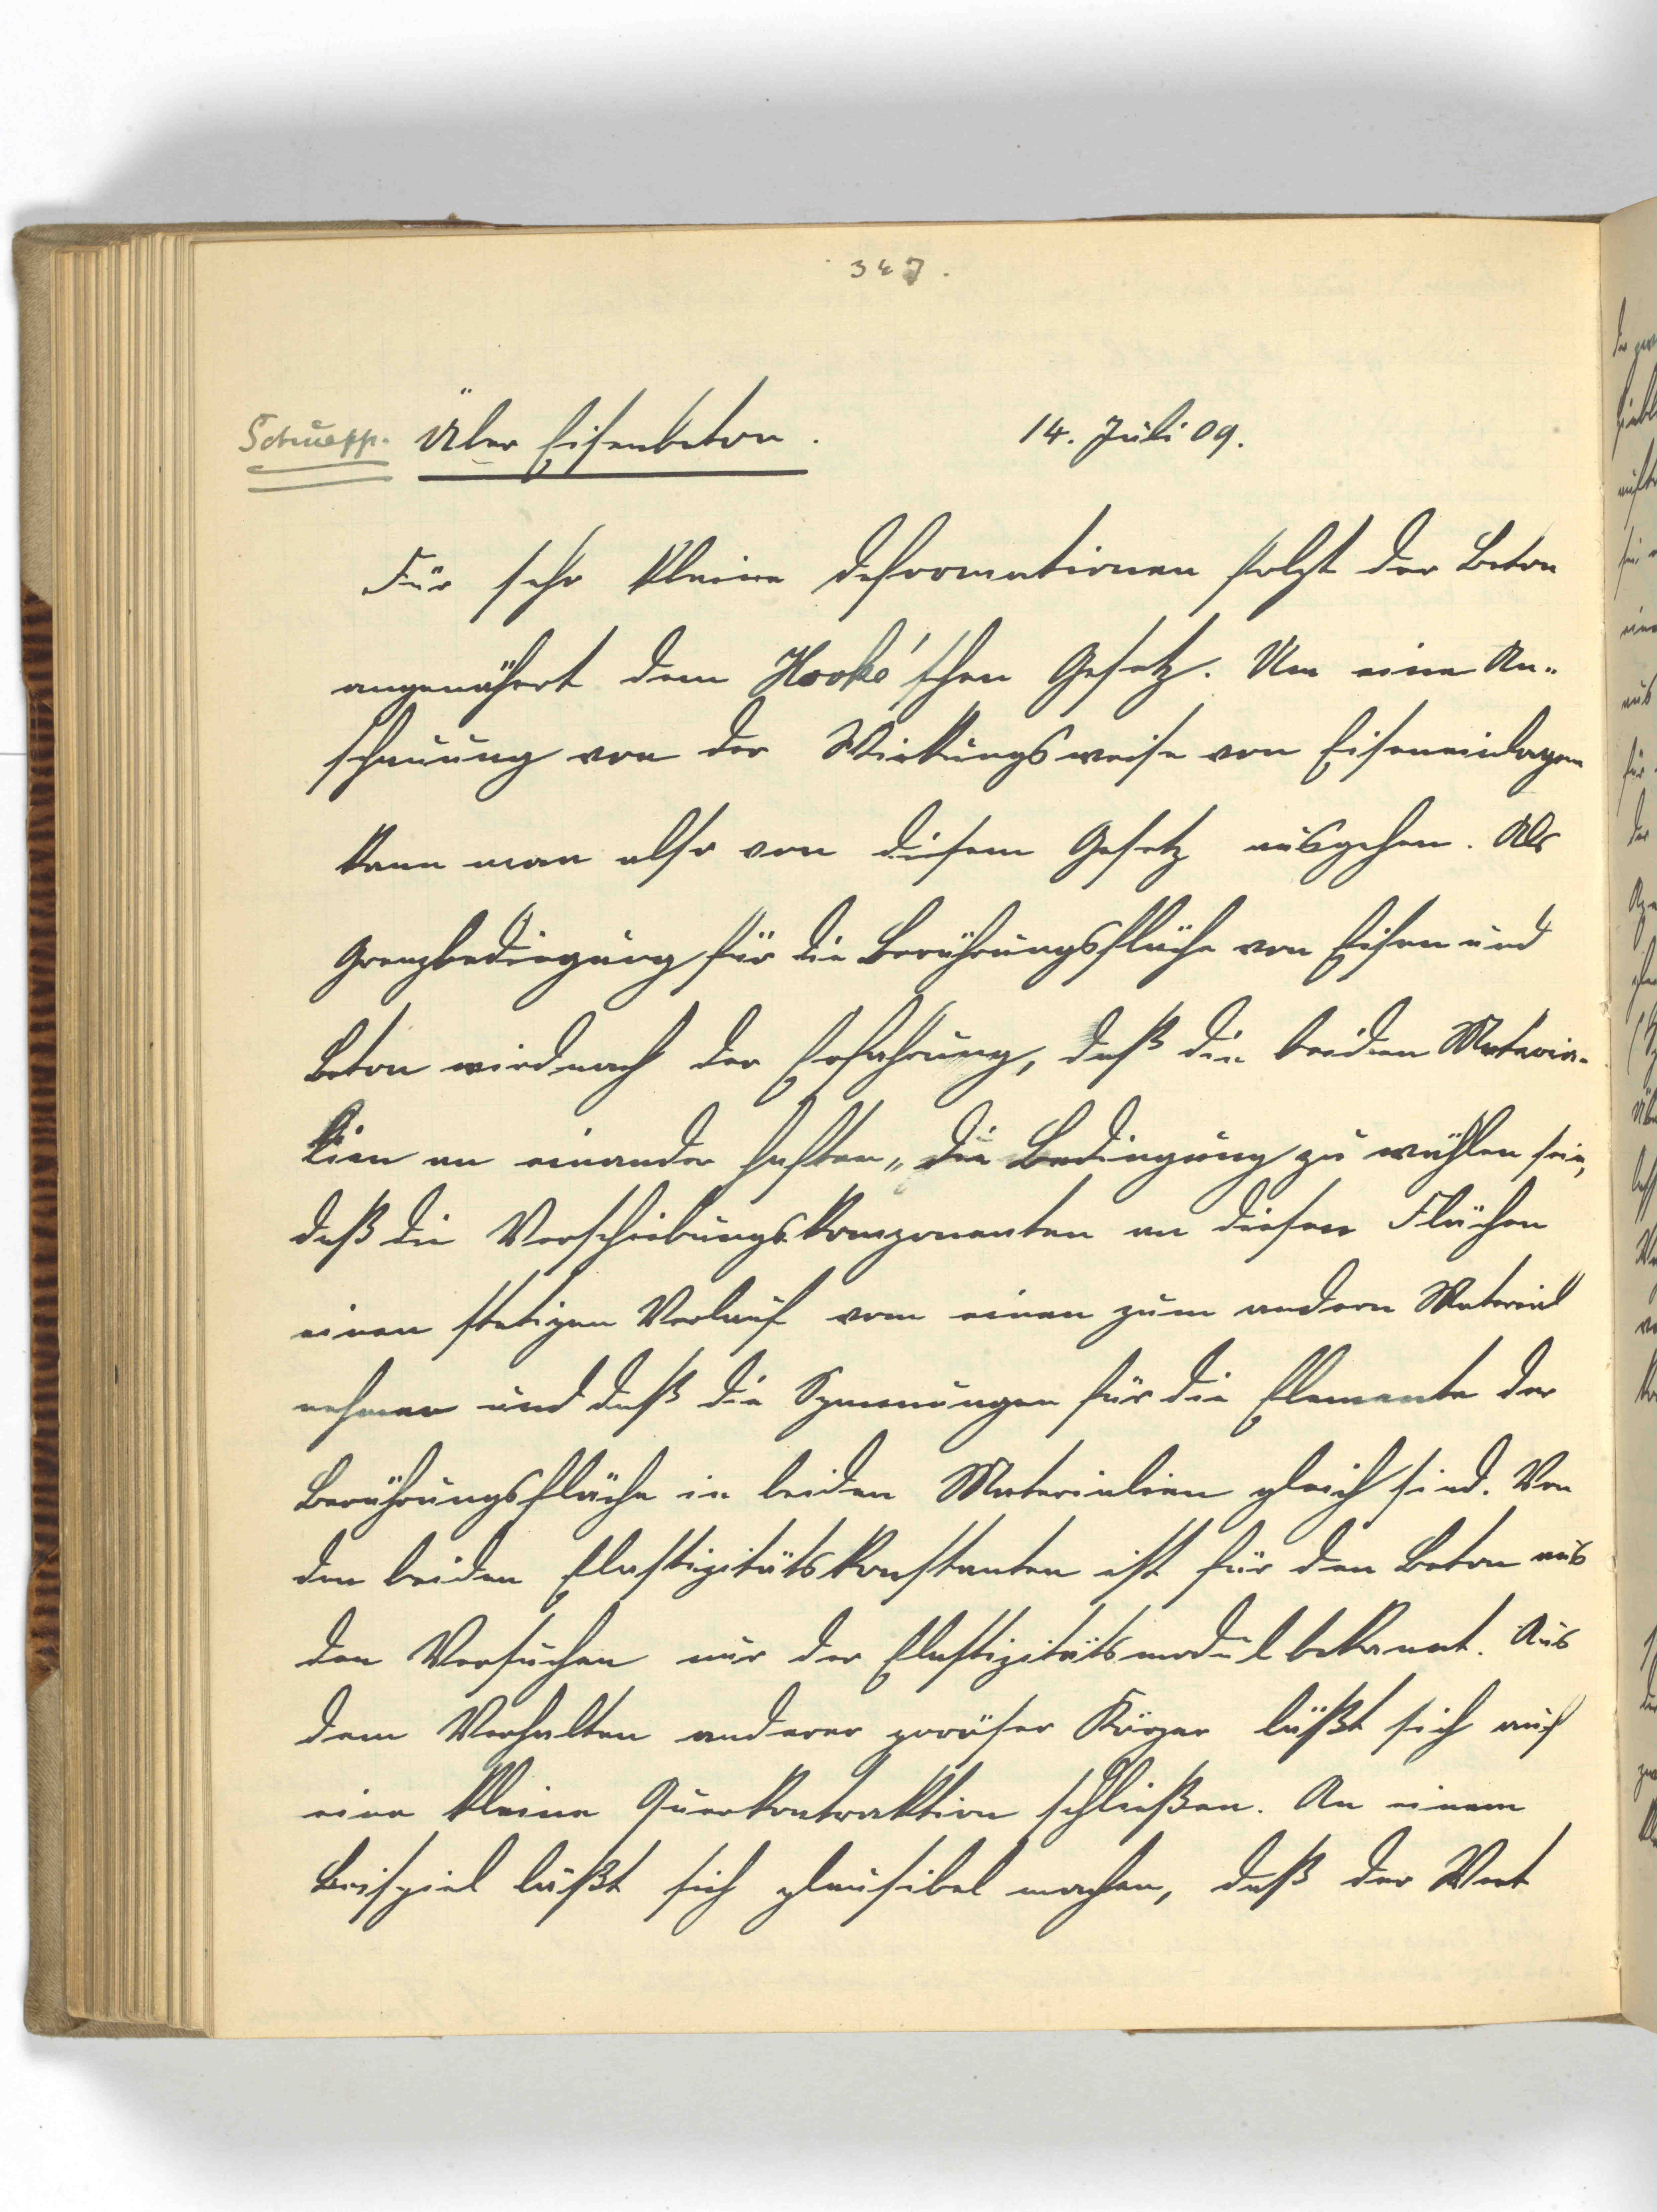 347.
Schuepp. Über Eisenbeton. 14. Juli 09.
Für sehr kleine Deformationen folgt der Beton
angenähert dem Hooke'schen Gesetz. Um eine An-
schauung von der Wirkungsweise von Eiseneinlagen
kann man also von diesem Gesetz ausgehen. Als
Grenzbedingung für die Berührungsfläche von Eisen und
Beton wird nach der Erfahrung, daß die beiden Materia-
lien an einander haften, die Bedingung zu wählen sein,
daß die Verschiebungskomponenten an diesen Flächen
einen stetigen Verlauf vom einen zum andern Material
nehmen und daß die Spannungen für die Elemente der
Berührungsfläche in beiden Materialien gleich sind. Von
den beiden Elastizitätskonstanten ist für den Beton aus
den Versuchen nur der Elastizitätsmodul bekannt. Aus
dem Verhalten anderer poröser Körper läßt sich auf
eine kleine Querkontraktion schließen. An einem
Beispiel läßt sich plausibel machen, daß der Wert